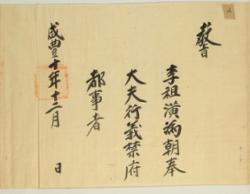 敎旨
李祖潢爲朝奉
大夫行義禁府
都事者
咸豊十年十二月　日